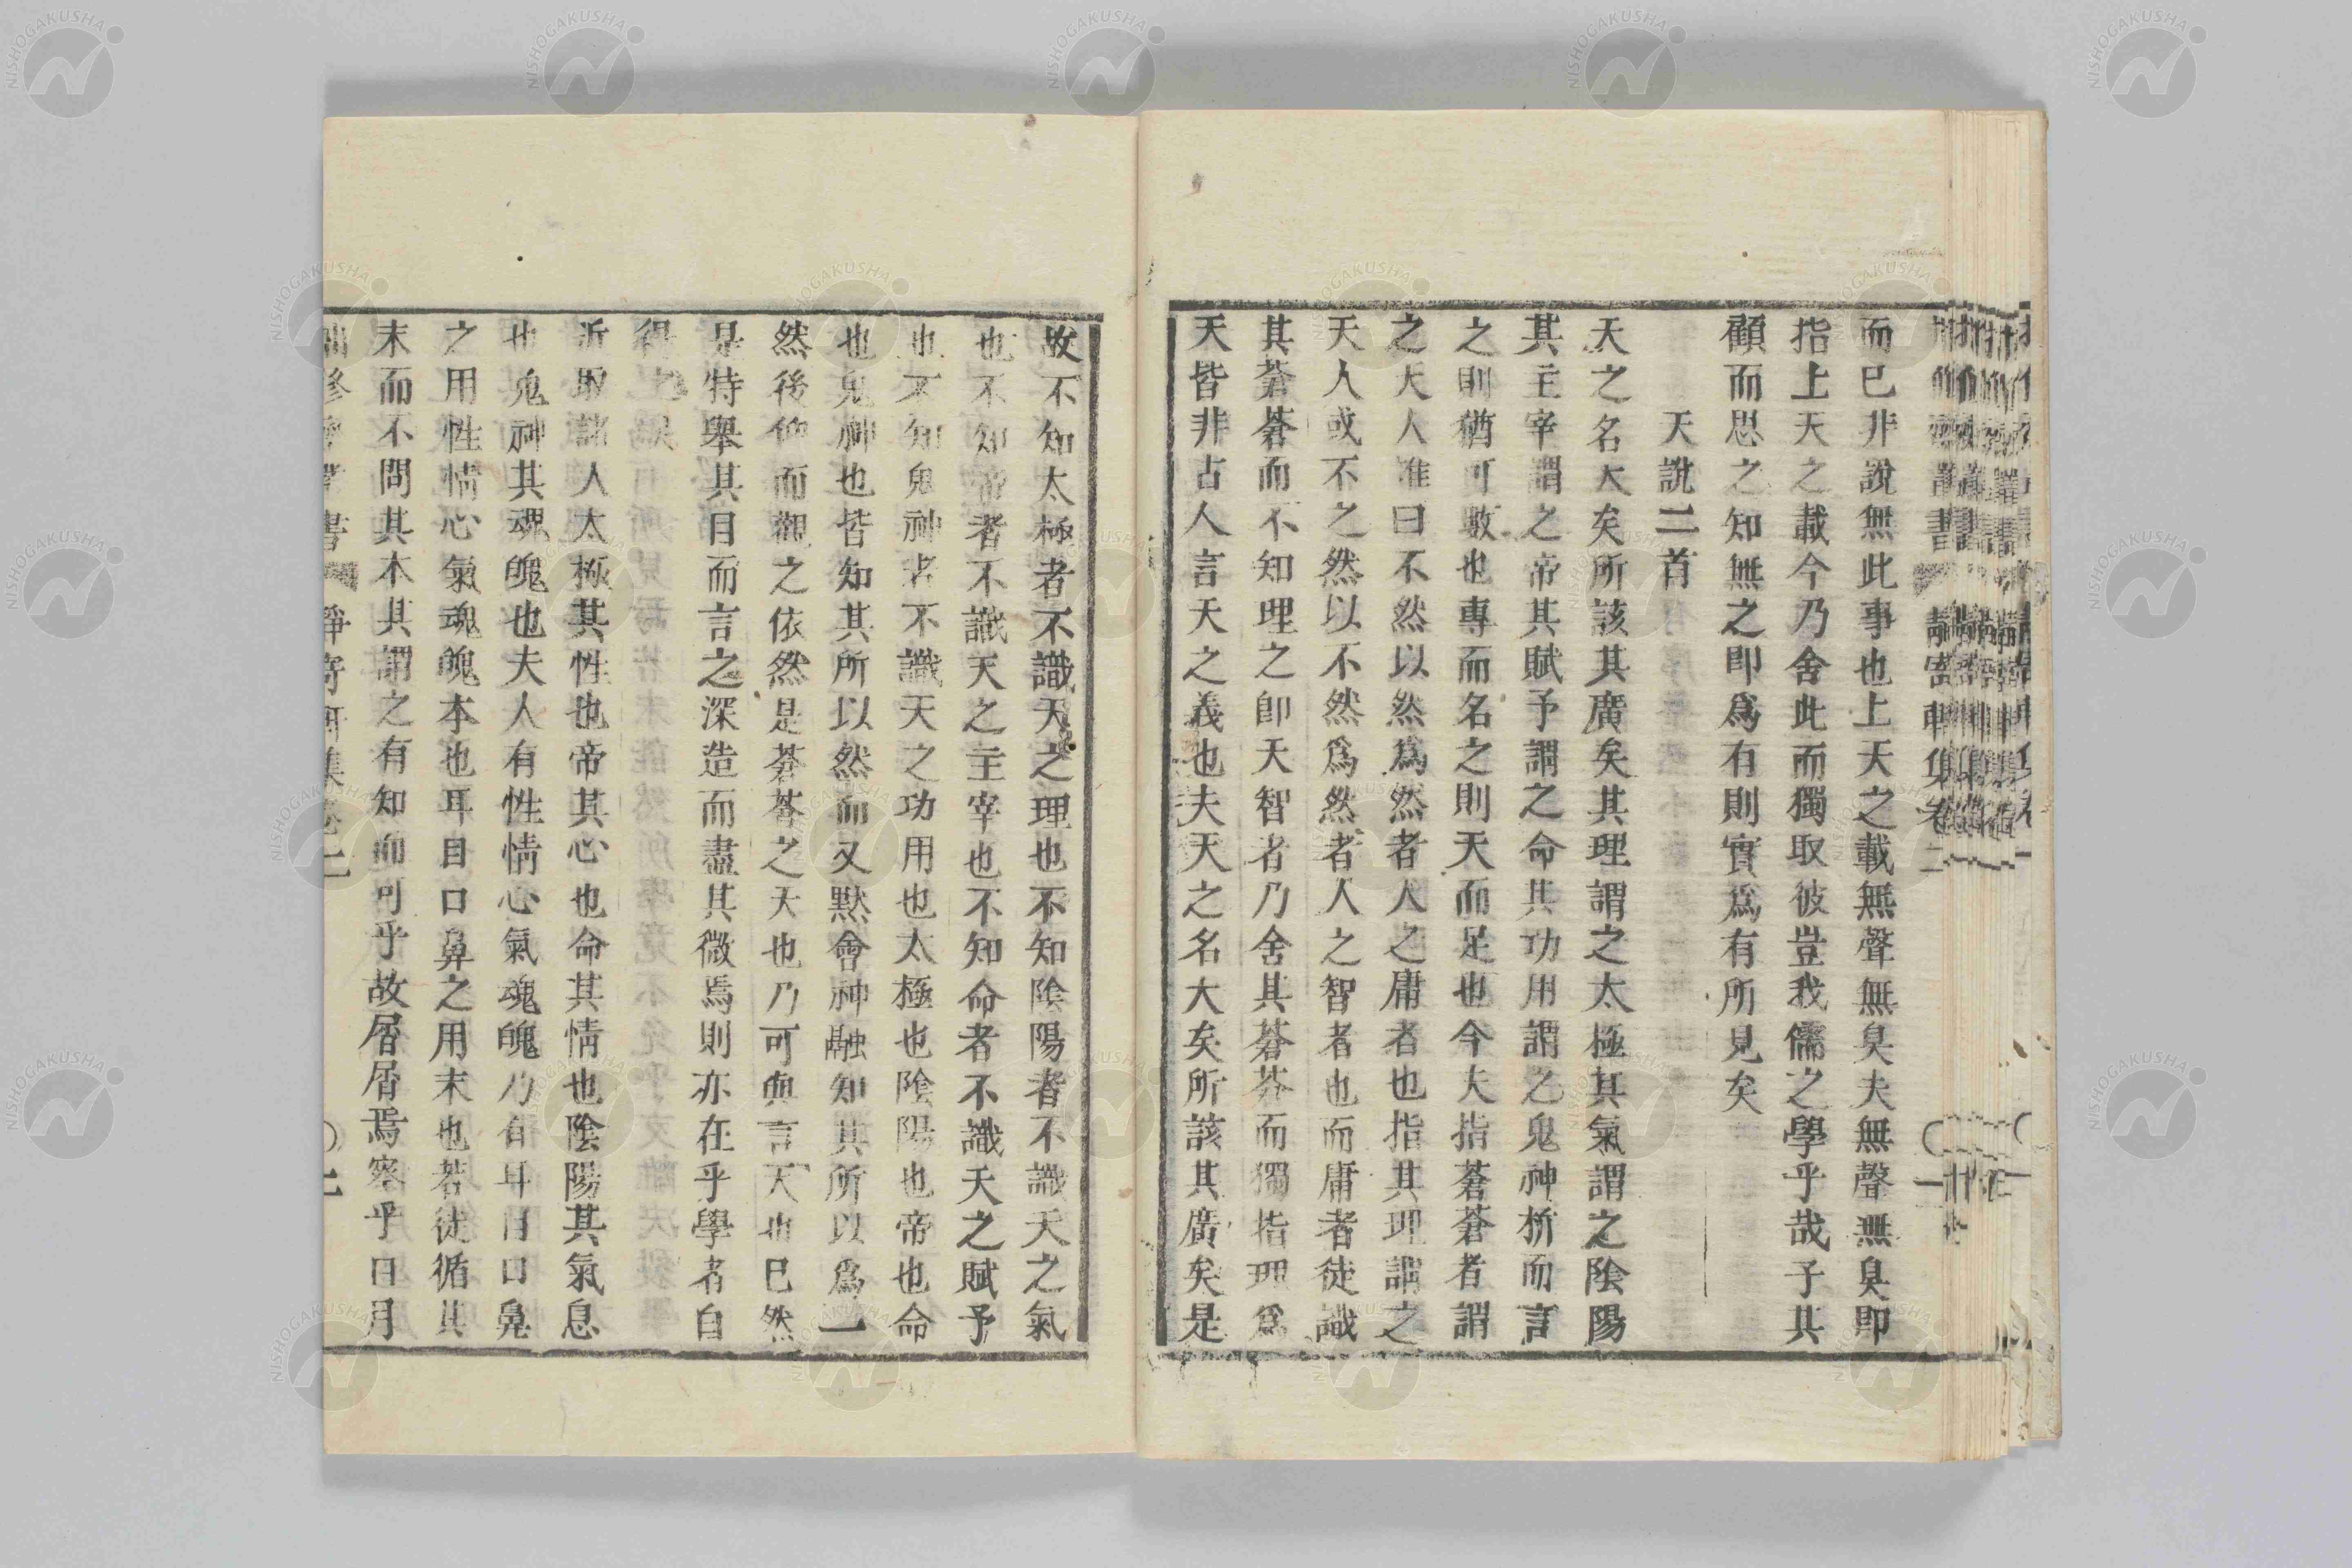 而已非說無此事也上天之載無聲無臭夫無聲無臭即
指上天之載今乃舍此而獨取彼豈我儒之學乎哉子其
顧而思之知無之即爲有則實爲有所見矣
天說二首
天之名大矣所該其廣矣其理謂之太極其氣謂之陰陽
其主宰謂之帝其賦予謂之命其功用謂之鬼神析而言
之則猶可數也專而名之則天而足也今夫指蒼蒼者謂
之天人准曰不然以然爲然者人之庸者也指其理謂之
天人或不之然以不然爲然者人之智者也而庸者徒識
其蒼蒼而不知理之卽天智者乃舍其蒼蒼而獨指理爲
天皆非古人言天之義也夫天之名大矣所該其廣矣是
故不知太極者不識天之理也不知陰陽者不識天之氣
也不知帝者不識天之主宰也不知命者不識天之賦予
也不知鬼神者不識天之功用也太極也陰陽也帝也命
也鬼神也皆知其所以然而又默會神融知其所以爲一
然後仰而觀之依然是蒼蒼之天也乃可與言天也已然
是特舉其目而言之深造而盡其微焉則亦在乎學者自
得
近取諸人太極其性也帝其心也命其情也陰陽其氣息
也鬼神其魂魄也夫人有性情心氣魂魄乃有耳目口鼻
之用性情心氣魂魄本也耳目口鼻之用末也若徒循其
末而不問其本其謂之有知而可乎故屑屑焉察乎日月
書 靜寄軒集卷二 〇二
靜寄軒集卷二 〇一
NISHOGAKUSHA